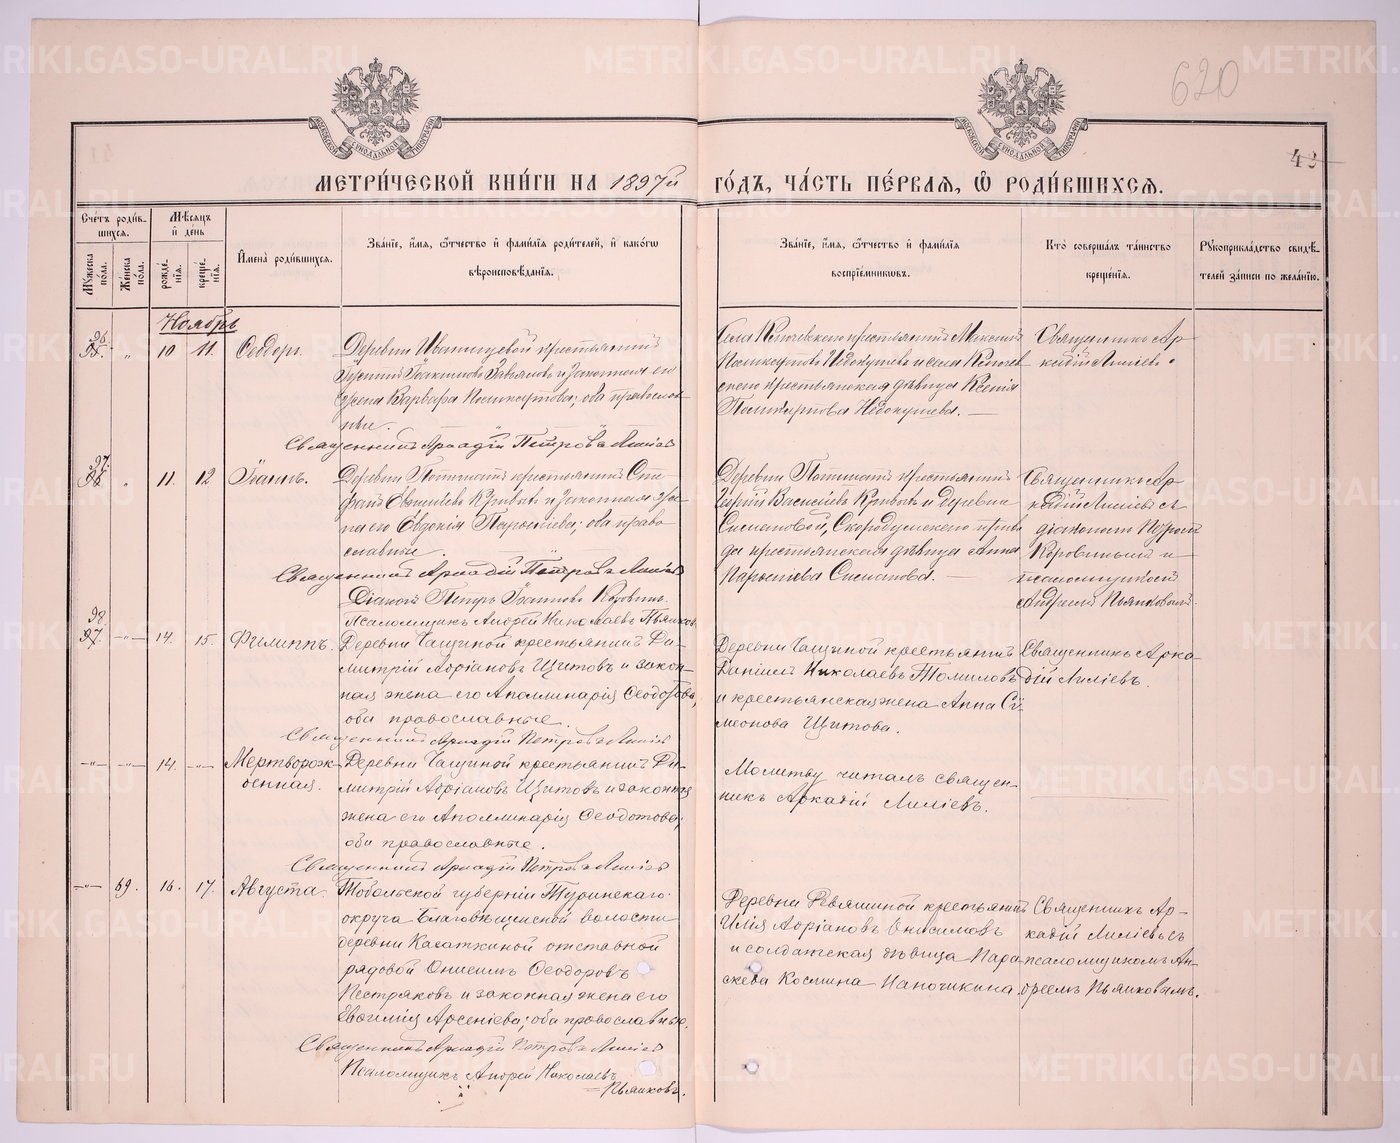 620
43
МЕТРИ́ЧЕСКОЙ КНИ́ГИ НА 1897й ГО́ДЪ, ЧА́СТЬ ПЕ́РВАЯ, Ѿ РОДИ́ВШИХСЯ.
Сче́тъ роди́в-
шихся.
Му́жеска по́ла.
Же́нска по́ла.
Мѣ́сяцъ и де́нь
рожде́-
нія.
креще́-
нія.
Имена̀ роди́вшихся.
Зва́ніе, и́мя, ѻ́тчество и фами́лія роди́телей, и како́гѡ
вѣроисповѣ́данія.
Зва́ніе, и́мя, ѻ́тчество и фами́лія
воспріе́мникѡвъ.
Кто̀ соверша́лъ та́инство
креще́нія.
Рꙋкоприкла́дство свидѣ́-
телей за́писи по жела́нію.
Ноябрь
96.
" 10 11. Ѳеодоръ.
Деревни Иванищевой крестьянинъ
Іоакимовъ Завьяловъ и законная его
жена Варвара Поликарпова; оба православ-
ные.
Священникъ Аркадій Петровъ Лиліевъ
крестьянинъ Максимъ
Поликарповъ Недокушевъ и села
скаго крестьянская дѣвица Ксенія
Поликарпова Недокушева.
Священникъ Ар-
кадій Лиліевъ.
97.
" 11. 12 Іоаннъ.
Деревни крестьянинъ Сте-
фанъ и законная же-
на его Евдокія оба право-
славные.
Священникъ Аркадій Петровъ Лиліевъ
Діаконъ Петръ Іоанновъ Коровинъ.
Псаломщикъ Андрей Николаевъ Пьянковъ
Деревни крестьянинъ
Георгій Васильевъ и деревни
Скородумскаго прихо-
да крестьянская дѣвица Анна
Священникъ Ар-
кадій Лиліевъ съ
діакономъ Петромъ
Коровинымъ и
псаломщикомъ
Андреемъ Пьянковымъ.
98.
97. —"— 14. 15. Филиппъ.
Деревни Чащиной крестьянинъ Ди-
митрій Адріановъ Щитовъ и закон-
ная жена его Аполлинарія Ѳеодотова,
оба православные.
Священникъ Аркадій Петровъ Лиліевъ
Деревни Чащиной крестьянинъ
Даніилъ Николаевъ Томиловъ
и крестьянская жена Анна Си-
меонова Щитова.
Священникъ Арка-
дій Лиліевъ.
—"— —"— 14. —"— Мертворож-
денная.
Деревни Чащиной крестьянинъ Ди-
митрій Адріановъ Щитовъ и законная
жена его Аполлинарія Ѳеодотова;
оба православные.
Священникъ Аркадій Петровъ Лиліевъ
Молитву читалъ священ-
никъ Аркадій Лиліевъ.
—"— 69. 16. 17. Августа.
Тобольской губерніи Туринскаго
округа Благовѣщенской волости
деревни Кабаткиной отставной
рядовой Онисимъ Ѳеодоровъ
Пестряковъ и законная жена его
Евѳимія Арсеніева; оба православные.
Священникъ Аркадій Петровъ Лиліевъ
Псаломщикъ Андрей Николаевъ
Пьянковъ.
Деревни Ревякиной крестьянинъ
Илія Адріановъ Онисимовъ
и солдатская дѣвица Пара-
скева Космина Папочикина.
Священникъ Ар-
кадій Лиліевъ съ
псаломщикомъ Ан-
дреемъ Пьянковымъ.